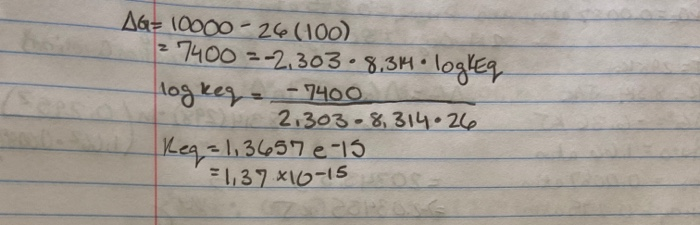 ΔG = 10000 - 26(100)
= 7400 = -2,303 · 8,314 · logKEq
log keq = -7400
2,303 · 8,314 · 26
Keq = 1,3657 e-15
= 1,37 ×10-15